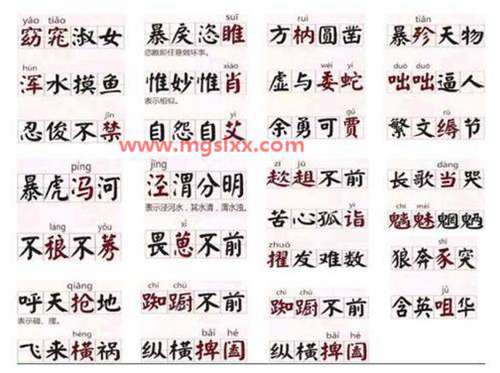 yǎo tiǎo
窈窕淑女
hún
浑水摸鱼
jīn
忍俊不禁
píng
暴虎冯河
láng yǒu
不稂不莠
qiāng
呼天抢地
表示碰、撞。
hèng
飞来横祸
suī
暴戾恣睢
恣睢即任意做坏事。
xiào
惟妙惟肖
表示相似。
yì
自怨自艾
jīng
泾渭分明
表示泾河水,其水清,渭水浊。
xǐ
畏葸不前
chí chú
踟蹰不前
bǎi hé
纵横捭阖
ruì
方枘圆凿
wēi yí
虚与委蛇
gǔ
余勇可贾
zī jū
趑趄不前
yì
苦心孤诣
zhuó
擢发难数
chí chú
踟蹰不前
bǎi hé
纵横捭阖
tiǎn
暴殄天物
duō duō
咄咄逼人
rù
繁文缛节
dàng
长歌当哭
chī mèi
魑魅魍魉
shǐ
狼奔豕突
jǔ
含英咀华
www.mgslxx.com